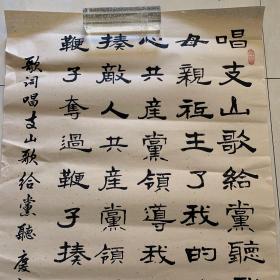 唱支山歌給黨聽
母親祇生了我的
心共産黨領導我
揍敵人共産黨領
鞭子奪過鞭子揍
歌詞唱支山歌給黨聽